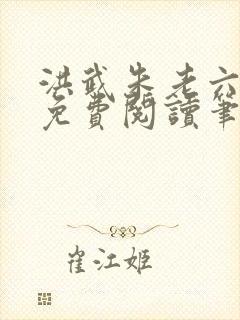 洪武朱老六
免費閱讀筆
崔江姬